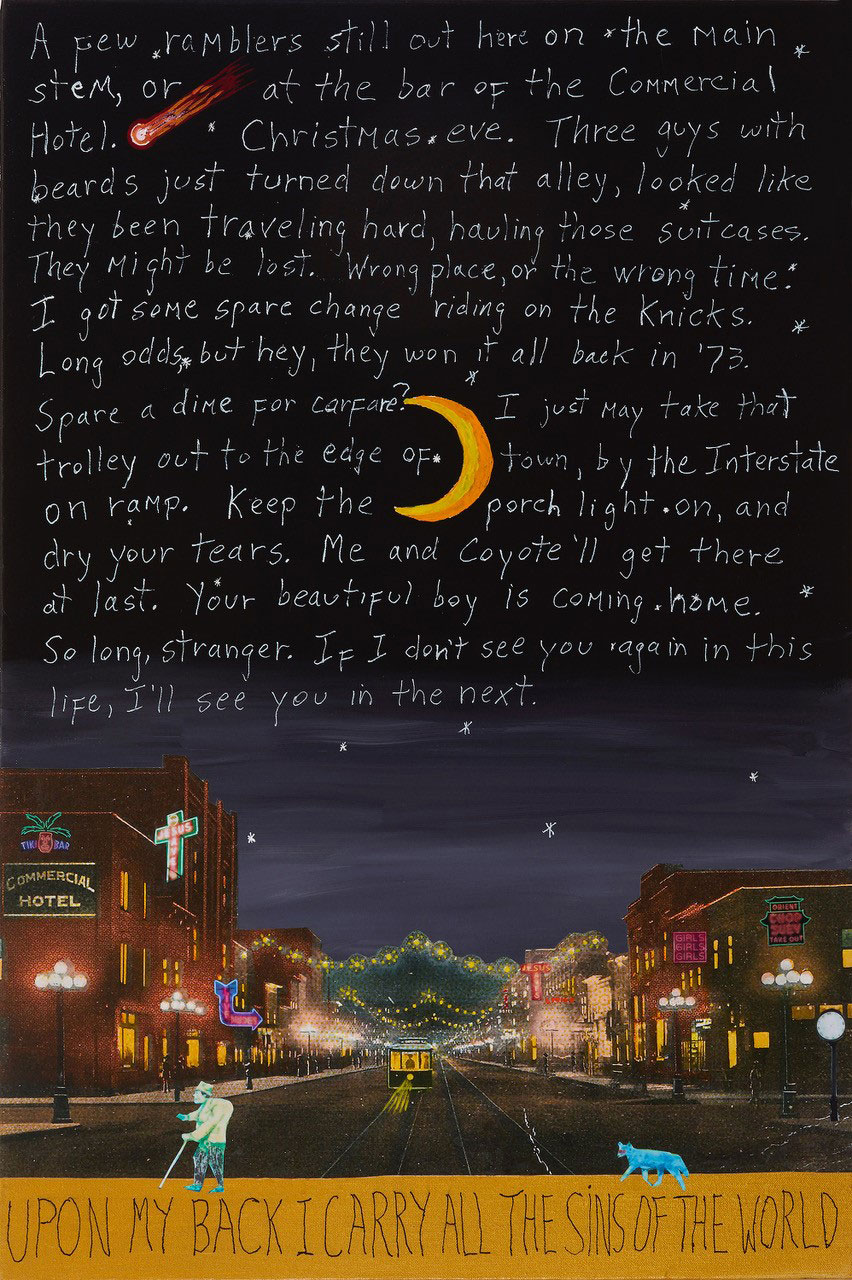 A few ramblers still out here on the main
stem, or at the bar of the Commercial
Hotel. Christmas eve. Three guys with
beards just turned down that alley, looked like
they been traveling hard, hauling those suitcases.
They might be lost. Wrong place, or the wrong time.
I got some spare change riding on the Knicks.
Long odds, but hey, they won it all back in '73.
Spare a dime for carfare? I just may take that
trolley out to the edge of town, by the Interstate
on ramp. Keep the porch light on, and
dry your tears. Me and Coyote'll get there
at last. Your beautiful boy is coming home.
So long, stranger. If I don't see you again in this
life, I'll see you in the next.
TIKI BAR
JESUS
COMMERCIAL
HOTEL
ORIENT
CHOP
SUEY
TAKE OUT
GIRLS
GIRLS
GIRLS
JESUS
UPON MY BACK I CARRY ALL THE SINS OF THE WORLD